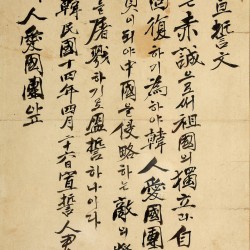 宣誓文
는 赤誠으로써 祖國의 獨立과 自
回復하기 爲하야 韓人愛國團
員이 되야 中國을 侵略하는 敵의 將
를 屠戮하기로 盟誓하나이다
韓民國十四年四月二十六日 宣誓人 尹
人愛國團 앞